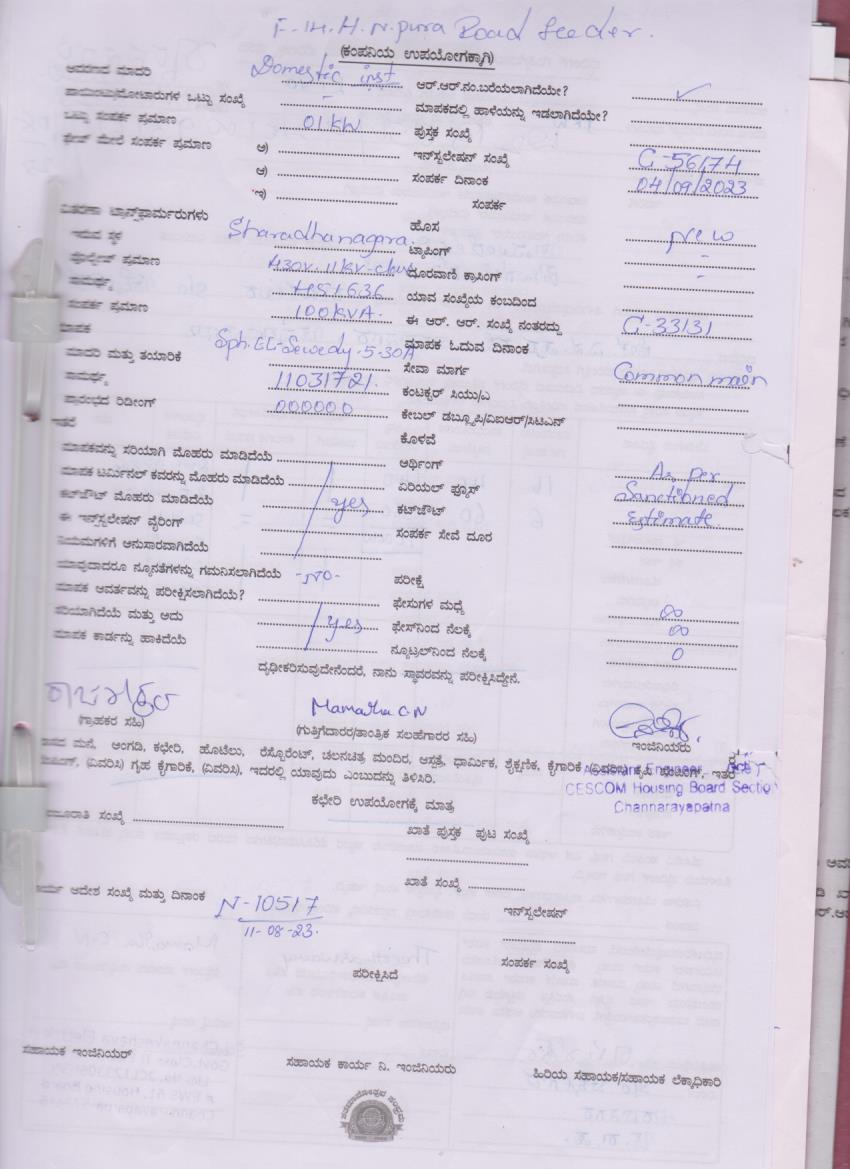 F-14. H.N.pura Road feeder.
(ಕಂಪನಿಯ ಉಪಯೋಗಕ್ಕಾಗಿ)
ಆವರಣದ ಮಾದರಿ Domestic inst ಆರ್.ಆರ್.ನಂ.ಬರೆಯಲಾಗಿದೆಯೇ? ✓
ಪಾಯಿಂಟ್ಸು/ಮೋಟಾರುಗಳ ಒಟ್ಟು ಸಂಖ್ಯೆ - ಮಾಪಕದಲ್ಲಿ ಹಾಳೆಯನ್ನು ಇಡಲಾಗಿದೆಯೇ?
ಒಟ್ಟು ಸಂಪರ್ಕ ಪ್ರಮಾಣ 01 kw ಪುಸ್ತಕ ಸಂಖ್ಯೆ
ಫೇಜ್ ಮೇಲೆ ಸಂಪರ್ಕ ಪ್ರಮಾಣ ಅ) ಇನ್‌ಸ್ಟಲೇಷನ್ ಸಂಖ್ಯೆ C-56174
ಆ) ಸಂಪರ್ಕ ದಿನಾಂಕ 04/09/2023
ಇ) ಸಂಪರ್ಕ
ವಿತರಣಾ ಟ್ರಾನ್ಸ್‌ಫಾರ್ಮರುಗಳು ಹೊಸ New
ಇರುವ ಸ್ಥಳ Sharadhanagara. ಟ್ಯಾಪಿಂಗ್ -
ವೋಲ್ಟೇಜ್ ಪ್ರಮಾಣ 430V. 11KV- ದೂರವಾಣಿ ಕ್ರಾಸಿಂಗ್ -
ಸಾಮರ್ಥ್ಯ ಯಾವ ಸಂಖ್ಯೆಯ ಕಂಬದಿಂದ
ಸಂಪರ್ಕ ಪ್ರಮಾಣ 100 KVA. ಈ ಆರ್. ಆರ್. ಸಂಖ್ಯೆ ನಂತರದ್ದು C-33131
ಮಾಪಕ ಮಾಪಕ ಓದುವ ದಿನಾಂಕ
ಮಾದರಿ ಮತ್ತು ತಯಾರಿಕೆ Sph. EL-Sewedy-5-30A ಸೇವಾ ಮಾರ್ಗ Common main
ಸಾಮರ್ಥ್ಯ 11031721. ಕಂಟಕ್ಟರ್ ಸಿಯು/ಎ
ಪ್ರಾರಂಭದ ರಿಡೀಂಗ್ 000000 ಕೇಬಲ್ ಡಬ್ಲ್ಯೂಪಿ/ವಿಐಆರ್/ಸಿಟಿಎಸ್
ಇತರೆ ಕೊಳವೆ
ಮಾಪಕವನ್ನು ಸರಿಯಾಗಿ ಮೊಹರು ಮಾಡಿದೆಯೆ ಆರ್ಥಿಂಗ್ As per
ಮಾಪಕ ಟರ್ಮಿನಲ್ ಕವರನ್ನು ಮೊಹರು ಮಾಡಿದೆಯೆ ಏರಿಯಲ್ ಫ್ಯೂಸ್ Sanctioned
ಕಟ್‌ಔಟ್ ಮೊಹರು ಮಾಡಿದೆಯೆ yes ಕಟ್‌ಔಟ್ Estimate.
ಈ ಇನ್‌ಸ್ಟಲೇಷನ್ ವೈರಿಂಗ್ ಸಂಪರ್ಕ ಸೇವೆ ದೂರ
ನಿಯಮಗಳಿಗೆ ಅನುಸಾರವಾಗಿದೆಯೆ
ಯಾವುದಾದರೂ ನ್ಯೂನತೆಗಳನ್ನು ಗಮನಿಸಲಾಗಿದೆಯೆ -NO- ಪರೀಕ್ಷೆ
ಮಾಪಕ ಆವರ್ತವನ್ನು ಪರೀಕ್ಷಿಸಲಾಗಿದೆಯೆ? ಫೇಸುಗಳ ಮಧ್ಯೆ ∞
ಸರಿಯಾಗಿದೆಯೆ ಮತ್ತು ಅದು yes ಫೇಸ್‌ನಿಂದ ನೆಲಕ್ಕೆ ∞
ಮಾಪಕ ಕಾರ್ಡನ್ನು ಹಾಕಿದೆಯೆ ನ್ಯೂಟ್ರಲ್‌ನಿಂದ ನೆಲಕ್ಕೆ 0
ದೃಢೀಕರಿಸುವುದೇನೆಂದರೆ, ನಾನು ಸ್ಥಾವರವನ್ನು ಪರೀಕ್ಷಿಸಿದ್ದೇನೆ.
Mamatha C-N
(ಗ್ರಾಹಕರ ಸಹಿ) (ಗುತ್ತಿಗೆದಾರರ/ತಾಂತ್ರಿಕ ಸಲಹೆಗಾರರ ಸಹಿ) ಇಂಜಿನಿಯರು
ಮನೆ, ಅಂಗಡಿ, ಕಛೇರಿ, ಹೊಟೆಲು, ರೆಸ್ಟೋರೆಂಟ್, ಚಲನಚಿತ್ರ ಮಂದಿರ, ಆಸ್ಪತ್ರೆ, ಧಾರ್ಮಿಕ, ಶೈಕ್ಷಣಿಕ, ಕೈಗಾರಿಕೆ (ವಿವರಿಸಿ) ಕೃಷಿ ಪಂಪಿಂಗ್, ಇತರೆ
(ವಿವರಿಸಿ) ಗೃಹ ಕೈಗಾರಿಕೆ, (ವಿವರಿಸಿ), ಇದರಲ್ಲಿ ಯಾವುದು ಎಂಬುದನ್ನು ತಿಳಿಸಿರಿ.
Assistant Engineer
CESCOM Housing Board Section
Channarayapatna
ಕಛೇರಿ ಉಪಯೋಗಕ್ಕೆ ಮಾತ್ರ
ಮಂಜೂರಾತಿ ಸಂಖ್ಯೆ ಖಾತೆ ಪುಸ್ತಕ ಪುಟ ಸಂಖ್ಯೆ
ಖಾತೆ ಸಂಖ್ಯೆ
ಕಾರ್ಯ ಆದೇಶ ಸಂಖ್ಯೆ ಮತ್ತು ದಿನಾಂಕ N-10517 ಇನ್‌ಸ್ಟಲೇಷನ್
11-08-23.
ಸಂಪರ್ಕ ಸಂಖ್ಯೆ
ಪರೀಕ್ಷಿಸಿದೆ
ಸಹಾಯಕ ಇಂಜಿನಿಯರ್ ಸಹಾಯಕ ಕಾರ್ಯ ನಿ. ಇಂಜಿನಿಯರು ಹಿರಿಯ ಸಹಾಯಕ/ಸಹಾಯಕ ಲೆಕ್ಕಾಧಿಕಾರಿ